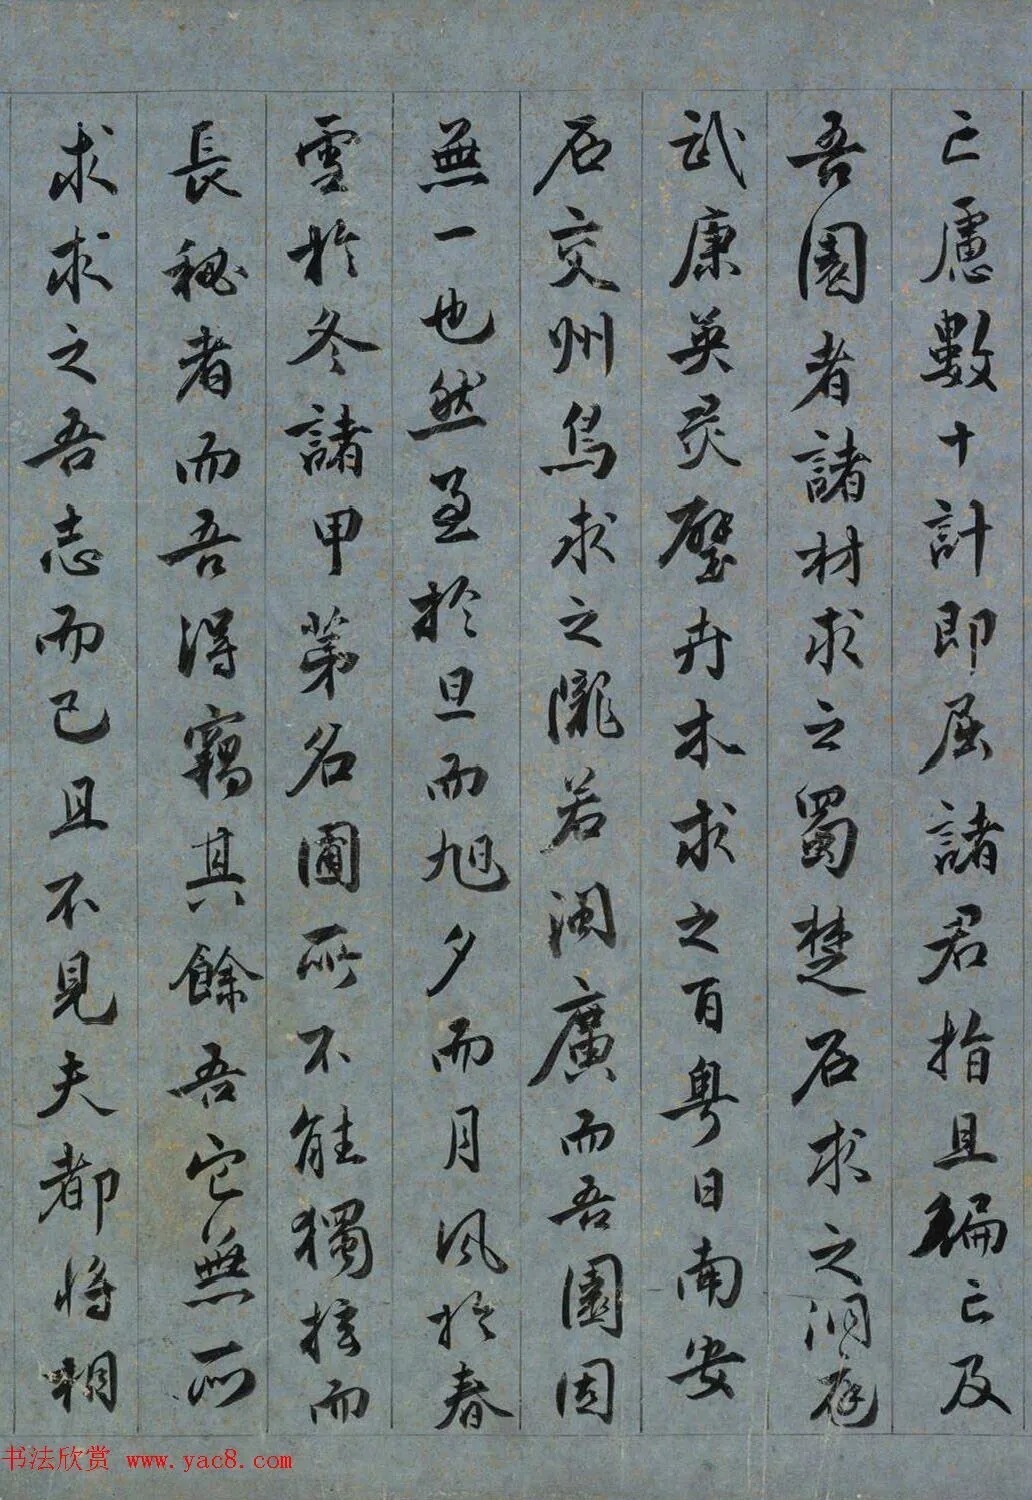 亡慮數十計即屈諸君指且徧亡及
吾園者諸材求之蜀楚石求之洞庭
武康英灵璧卉木求之百粤日南安
石交州鳥求之隴若閩廣而吾園固
無一也然至於旦而旭夕而月風於春
雪於冬諸甲第名圃所不能獨擅而
長秘者而吾得竊其餘吾它無所
求求之吾志而已且不見夫都将相
书法欣赏 www.yac8.com